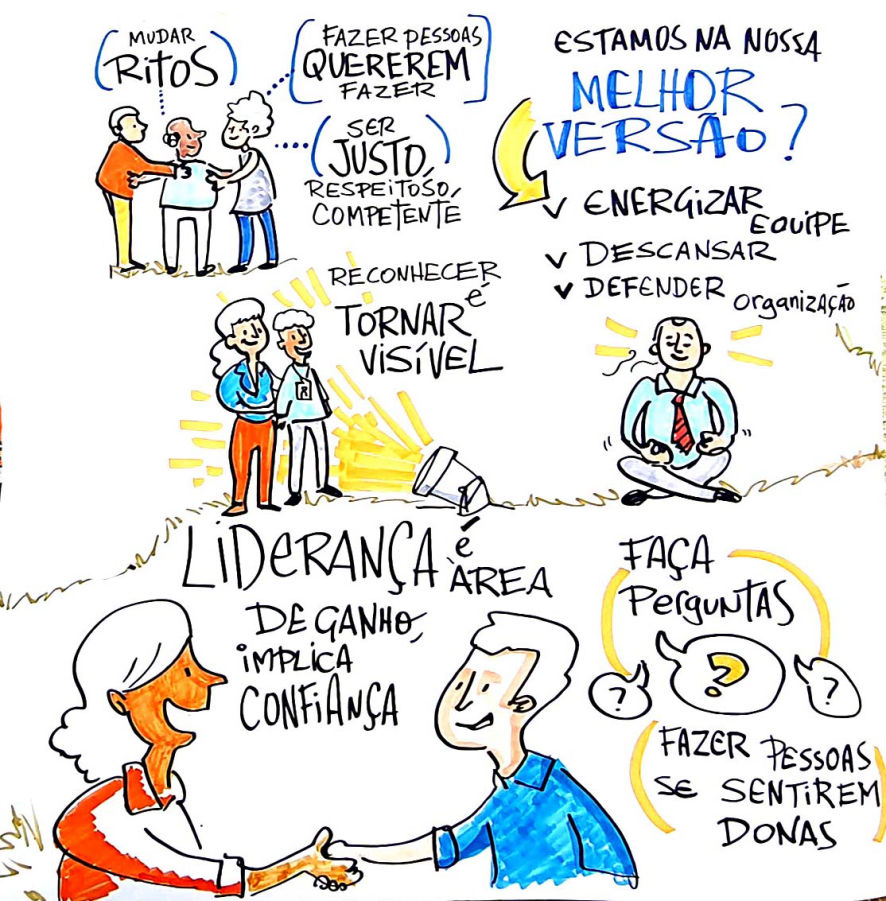 MUDAR
RITOS
FAZER PESSOAS
QUEREREM
FAZER
SER
JUSTO,
RESPEITOSO,
COMPETENTE
ESTAMOS NA NOSSA
MELHOR
VERSÃO?
ENERGIZAR
EQUIPE
DESCANSAR
DEFENDER organização
RECONHECER
é
TORNAR
VISÍVEL
LIDERANÇA é
ÁREA
DE GANHO,
IMPLICA
CONFIANÇA
FAÇA
PerguntAS
? ? ?
FAZER PESSOAS
SE SENTIREM
DONAS